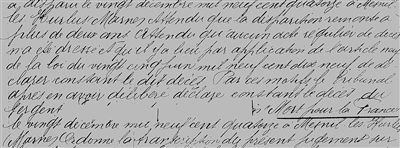 a disparu le vingt décembre mil neuf cent quatorze à Mesnil
les Hurlus Marne; Attendu que la disparition remonte à
plus de deux ans Attendu qu'aucun acte régulier de décès
n'a été dressé et qu'il y a lieu par application de l'article neuf
de la loi du vingt cinq juin mil neuf cent dix neuf de dé
clarer constant le dit décès, Par ces motifs le Tribunal
après en avoir délibéré déclare constant le décès du
Sergent Mort pour la France
le vingt décembre mil neuf cent quatorze à Mesnil les Hurlus
(Marne) Ordonne la transcription du présent jugement sur